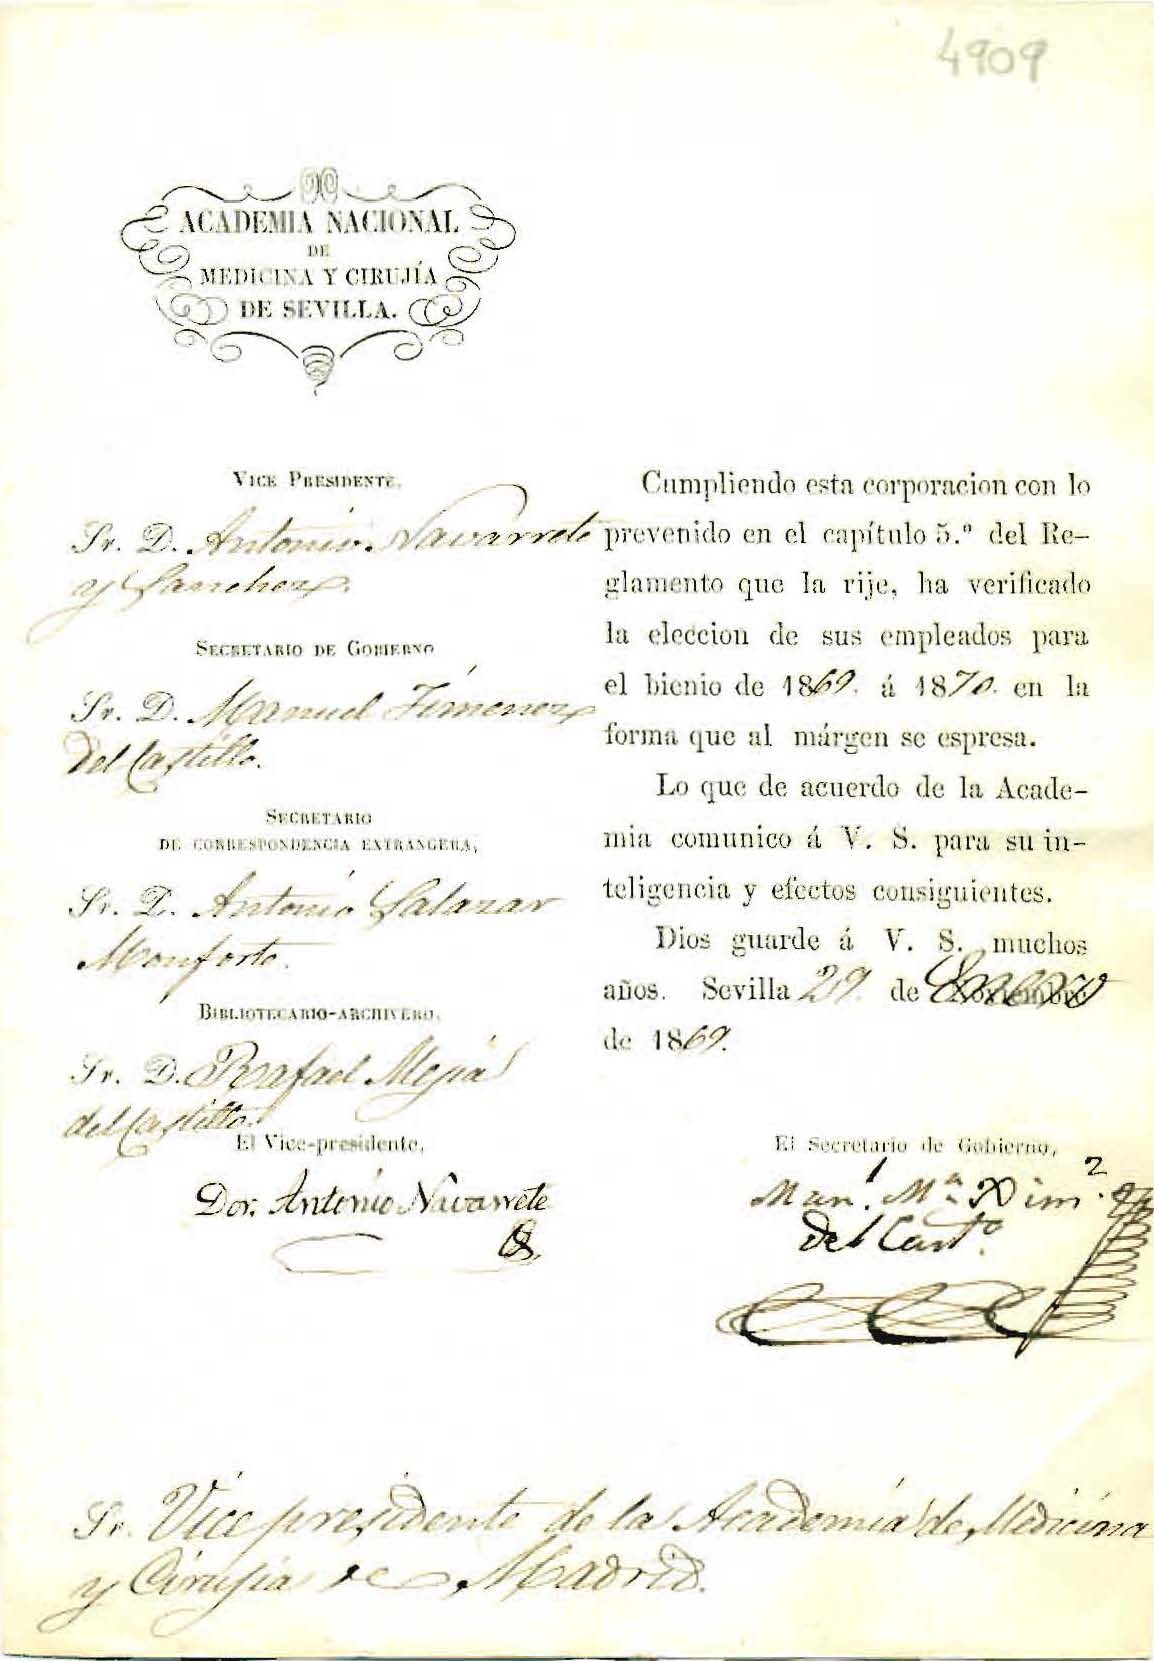 4909
ACADEMIA NACIONAL
DE
MEDICINA Y CIRUJÍA
DE SEVILLA.
VICE PRESIDENTE.
Sr. D. Antonio Navarrete
y Sanchez.
SECRETARIO DE GOBIERNO
Sr. D. Manuel Jimenez
del Castillo.
SECRETARIO
DE CORRESPONDENCIA EXTRANGERA,
Sr. D. Antonio Salazar
Monforte.
BIBLIOTECARIO-ARCHIVERO.
Sr. D. Rafael Mejía
del Castillo.
Cumpliendo esta corporacion con lo
prevenido en el capítulo 5.º del Re-
glamento que la rije, ha verificado
la eleccion de sus empleados para
el bienio de 1869. á 1870. en la
forma que al márgen se espresa.
Lo que de acuerdo de la Acade-
mia comunico á V. S. para su in-
teligencia y efectos consiguientes.
Dios guarde á V. S. muchos
años. Sevilla 29. de Enero
de 1869.
El Vice-presidente,
Dor. Antonio Navarrete
El Secretario de Gobierno,
Man.l M.a Xim.z
del Cast.o
Sr. Vice presidente de la Academia de Medicina
y Cirujía de Madrid.